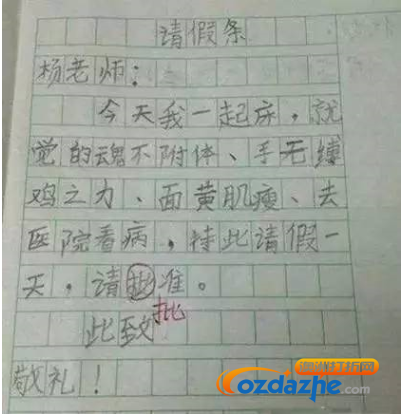 请假条
杨老师：
今天我一起床，就
觉的魂不附体、手无缚
鸡之力、面黄肌瘦、去
医院看病，特此请假一
天，请批准。
批
此致
敬礼！
ozdazhe.com